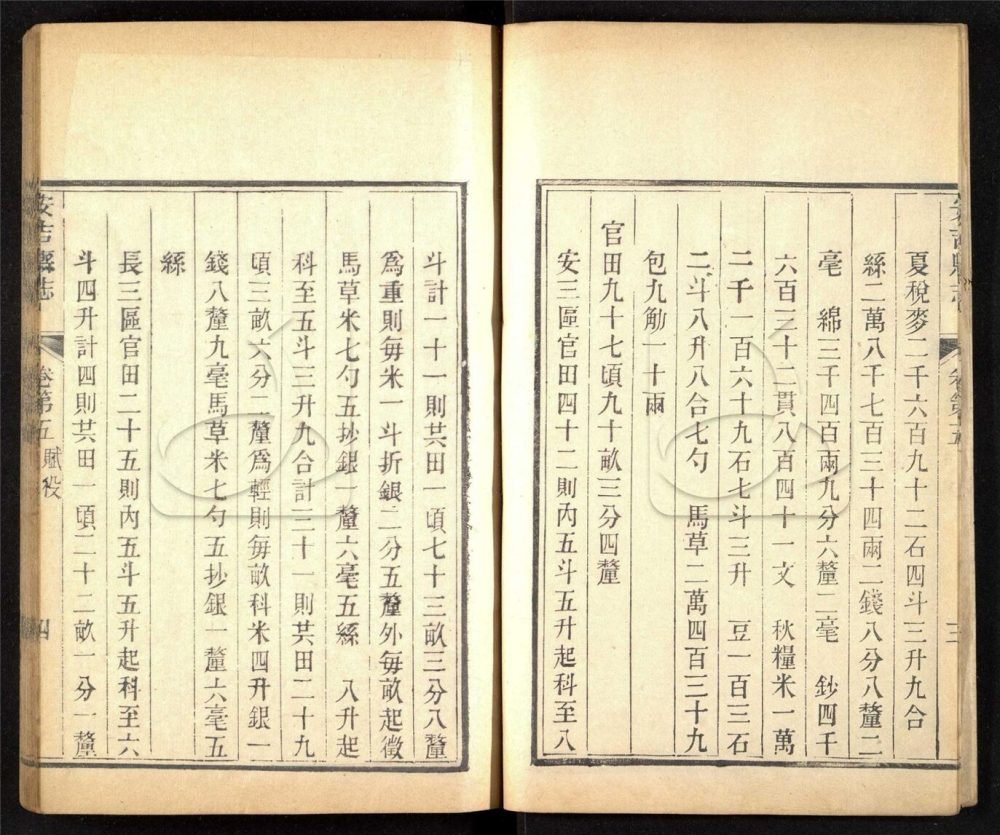 夏稅麥二千六百九十二石四斗三升九合
絲二萬八千七百三十四兩二錢八分八釐二
毫　綿三千四百兩九分六釐二毫　鈔四千
六百三十二貫八百四十一文　秋糧米一萬
二千一百六十九石七斗三升　豆一百三石
二斗八升八合七勺　馬草二萬四百三十九
包九觔一十兩
官田九十七頃九十畝三分四釐
安三區官田四十二則內五斗五升起科至八
卷第五
三
斗計一十一則共田一頃七十三畝三分八釐
爲重則每米一斗折銀二分五釐外每畝起徵
馬草米七勺五抄銀一釐六毫五絲　八升起
科至五斗三升九合計三十一則共田二十九
頃三畝六分二釐爲輕則每畝科米四升銀一
錢八釐九毫馬草米七勺五抄銀一釐六毫五
絲
長三區官田二十五則內五斗五升起科至六
斗四升計四則共田一頃二十二畝一分一釐
安吉縣志
卷第五
賦役
四